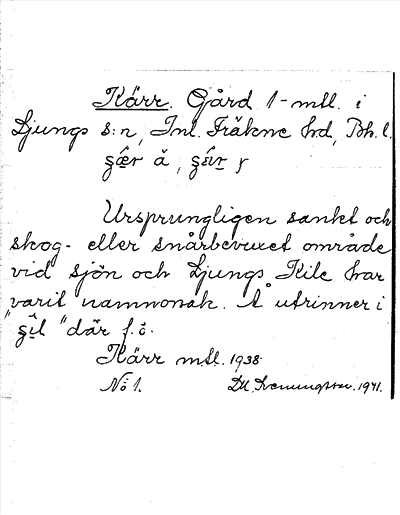 Kärr. Gård 1 mtl. i
Ljungs s:n, Inl. Fräkne hrd, Bh. l.
Ursprungligen sankt och
skog- eller snårbevuxet område
vid sjön och Ljungs Kile har
varit namnorsak. Å utrinner i
där f. ö.
Kärr mtl. 1938.
No 1. 1941.